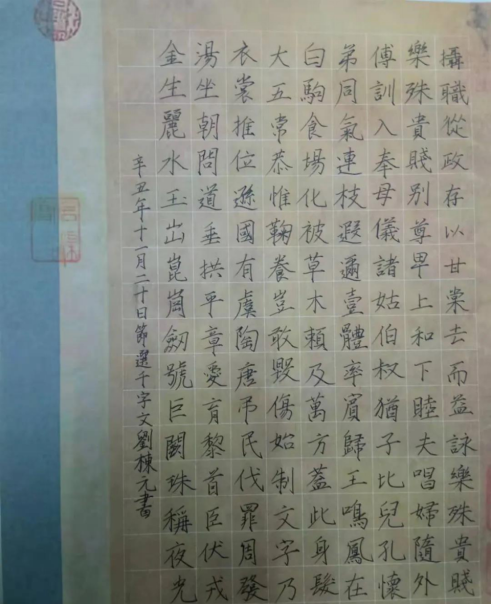 攝職從政存以甘棠去而益詠樂殊貴賤
樂殊貴賤別尊卑上和下睦夫唱婦隨外
傅訓入奉母儀諸姑伯叔猶子比兒孔懷
弟同氣連枝遐邇壹體率賓歸王鳴鳳在
白駒食場化被草木賴及萬方蓋此身髮
大五常恭惟鞠養豈敢毀傷始制文字乃
衣裳推位遜國有虞陶唐吊民伐罪周發
湯坐朝問道垂拱平章愛育黎首臣伏戎
金生麗水玉出崑崗劍號巨闕珠稱夜光
辛丑年十一月二十日節選千字文劉棟元書